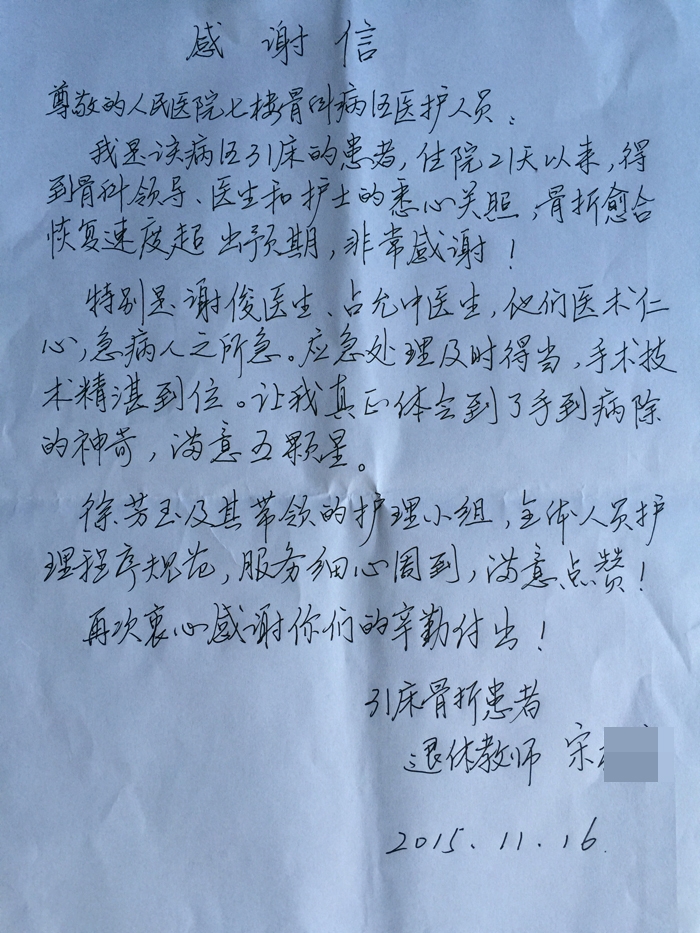 感谢信
尊敬的人民医院七楼骨科病区医护人员：
我是该病区31床的患者，住院21天以来，得
到骨科领导、医生和护士的悉心关照，骨折愈合
恢复速度超出预期，非常感谢！
特别是谢俊医生、占允中医生，他们医术仁
心，急病人之所急。应急处理及时得当，手术技
术精湛到位。让我真正体会到了手到病除
的神奇，满意五颗星。
徐芳玉及其带领的护理小组，全体人员护
理程序规范，服务细心周到，满意点赞！
再次衷心感谢你们的辛勤付出！
31床骨折患者
退休教师 宋
2015.11.16.